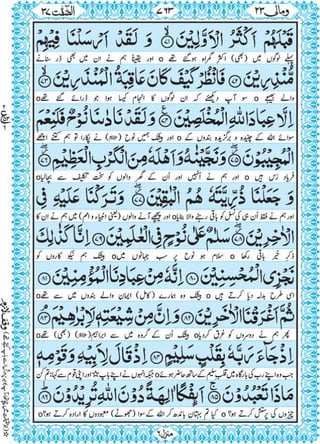 الصّٰٓفّٰت ٣٧
٧٦٣
ومالی ٢٣
قَبْلَهُمْ اَكْثَرُ الْاَوَّلِيْنَ ۙ‏﴿٧١﴾ وَ لَقَدْ اَرْسَلْنَا فِيْهِمْ
پہلے لوگوں میں (بھی) اکثر گمراہ ہوگئے تھے o اور یقیناً ہم نے ان میں بھی ڈر سنانے
مُّنْذِرِيْنَ ﴿٧٢﴾ فَانْظُرْ كَيْفَ كَانَ عَاقِبَةُ الْمُنْذَرِيْنَ ۙ‏﴿٧٣﴾
والے بھیجے o سو آپ دیکھئے کہ ان لوگوں کا انجام کیسا ہوا جو ڈرائے گئے تھے o
اِلَّا عِبَادَ اللّٰهِ الْمُخْلَصِيْنَ ﴿٧٤﴾ وَ لَقَدْ نَادٰىنَا نُوْحٌ فَلَنِعْمَ
سوائے اللہ کے چنیدہ و برگزیدہ بندوں کے o اور بیشک ہمیں نوح نے پکارا تو ہم کتنے اچھے
الْمُجِيْبُوْنَ ۖ‏﴿٧٥﴾ وَ نَجَّيْنٰهُ وَ اَهْلَهٗ مِنَ الْكَرْبِ الْعَظِيْمِ ۖ‏﴿٧٦﴾
فریاد رس ہیں o اور ہم نے انہیں اور ان کے گھر والوں کو سخت تکلیف سے بچا لیا o
وَ جَعَلْنَا ذُرِّيَّتَهٗ هُمُ الْبٰقِيْنَ ۖ‏﴿٧٧﴾ وَ تَرَكْنَا عَلَيْهِ فِى
اور ہم نے فقط ان ہی کی نسل کو باقی رہنے والا بنایا o اور پیچھے آنے والوں (یعنی انبیاء و امم) میں ہم نے ان کا
الْاٰخِرِيْنَ ۖ‏﴿٧٨﴾ سَلٰمٌ عَلٰى نُوْحٍ فِى الْعٰلَمِيْنَ ﴿٧٩﴾ اِنَّا كَذٰلِكَ
ذکرِ خیر باقی رکھا o سلام ہو نوح پر سب جہانوں میں o بیشک ہم نیکو کاروں کو
نَجْزِى الْمُحْسِنِيْنَ ﴿٨٠﴾ اِنَّهٗ مِنْ عِبَادِنَا الْمُؤْمِنِيْنَ ﴿٨١﴾
اسی طرح بدلہ دیا کرتے ہیں o بیشک وہ ہمارے (کامل) ایمان والے بندوں میں سے تھے o
ثُمَّ اَغْرَقْنَا الْاٰخَرِيْنَ ﴿٨٢﴾ وَ اِنَّ مِنْ شِيْعَتِهٖ لَاِبْرٰهِيْمَ ۘ‏﴿٨٣﴾
پھر ہم نے دوسروں کو غرق کر دیا o بیشک ان کے گروہ میں سے ابراہیم (بھی) تھے o
اِذْ جَآءَ رَبَّهٗ بِقَلْبٍ سَلِيْمٍ ﴿٨٤﴾ اِذْ قَالَ لِاَبِيْهِ وَ قَوْمِهٖ
جب وہ اپنے رب کی بارگاہ میں قلبِ سلیم کے ساتھ حاضر ہوئے o
مَاذَا تَعْبُدُوْنَ ۚ‏﴿٨٥﴾ اَئِفْكًا اٰلِهَةً دُوْنَ اللّٰهِ تُرِيْدُوْنَ ؕ‏﴿٨٦﴾
چیزوں کی پرستش کرتے ہو؟ o کیا تم بہتان باندھ کر اللہ کے سوا (جھوٹے) معبودوں کا ارادہ کرتے ہو؟ o
منزل ٦